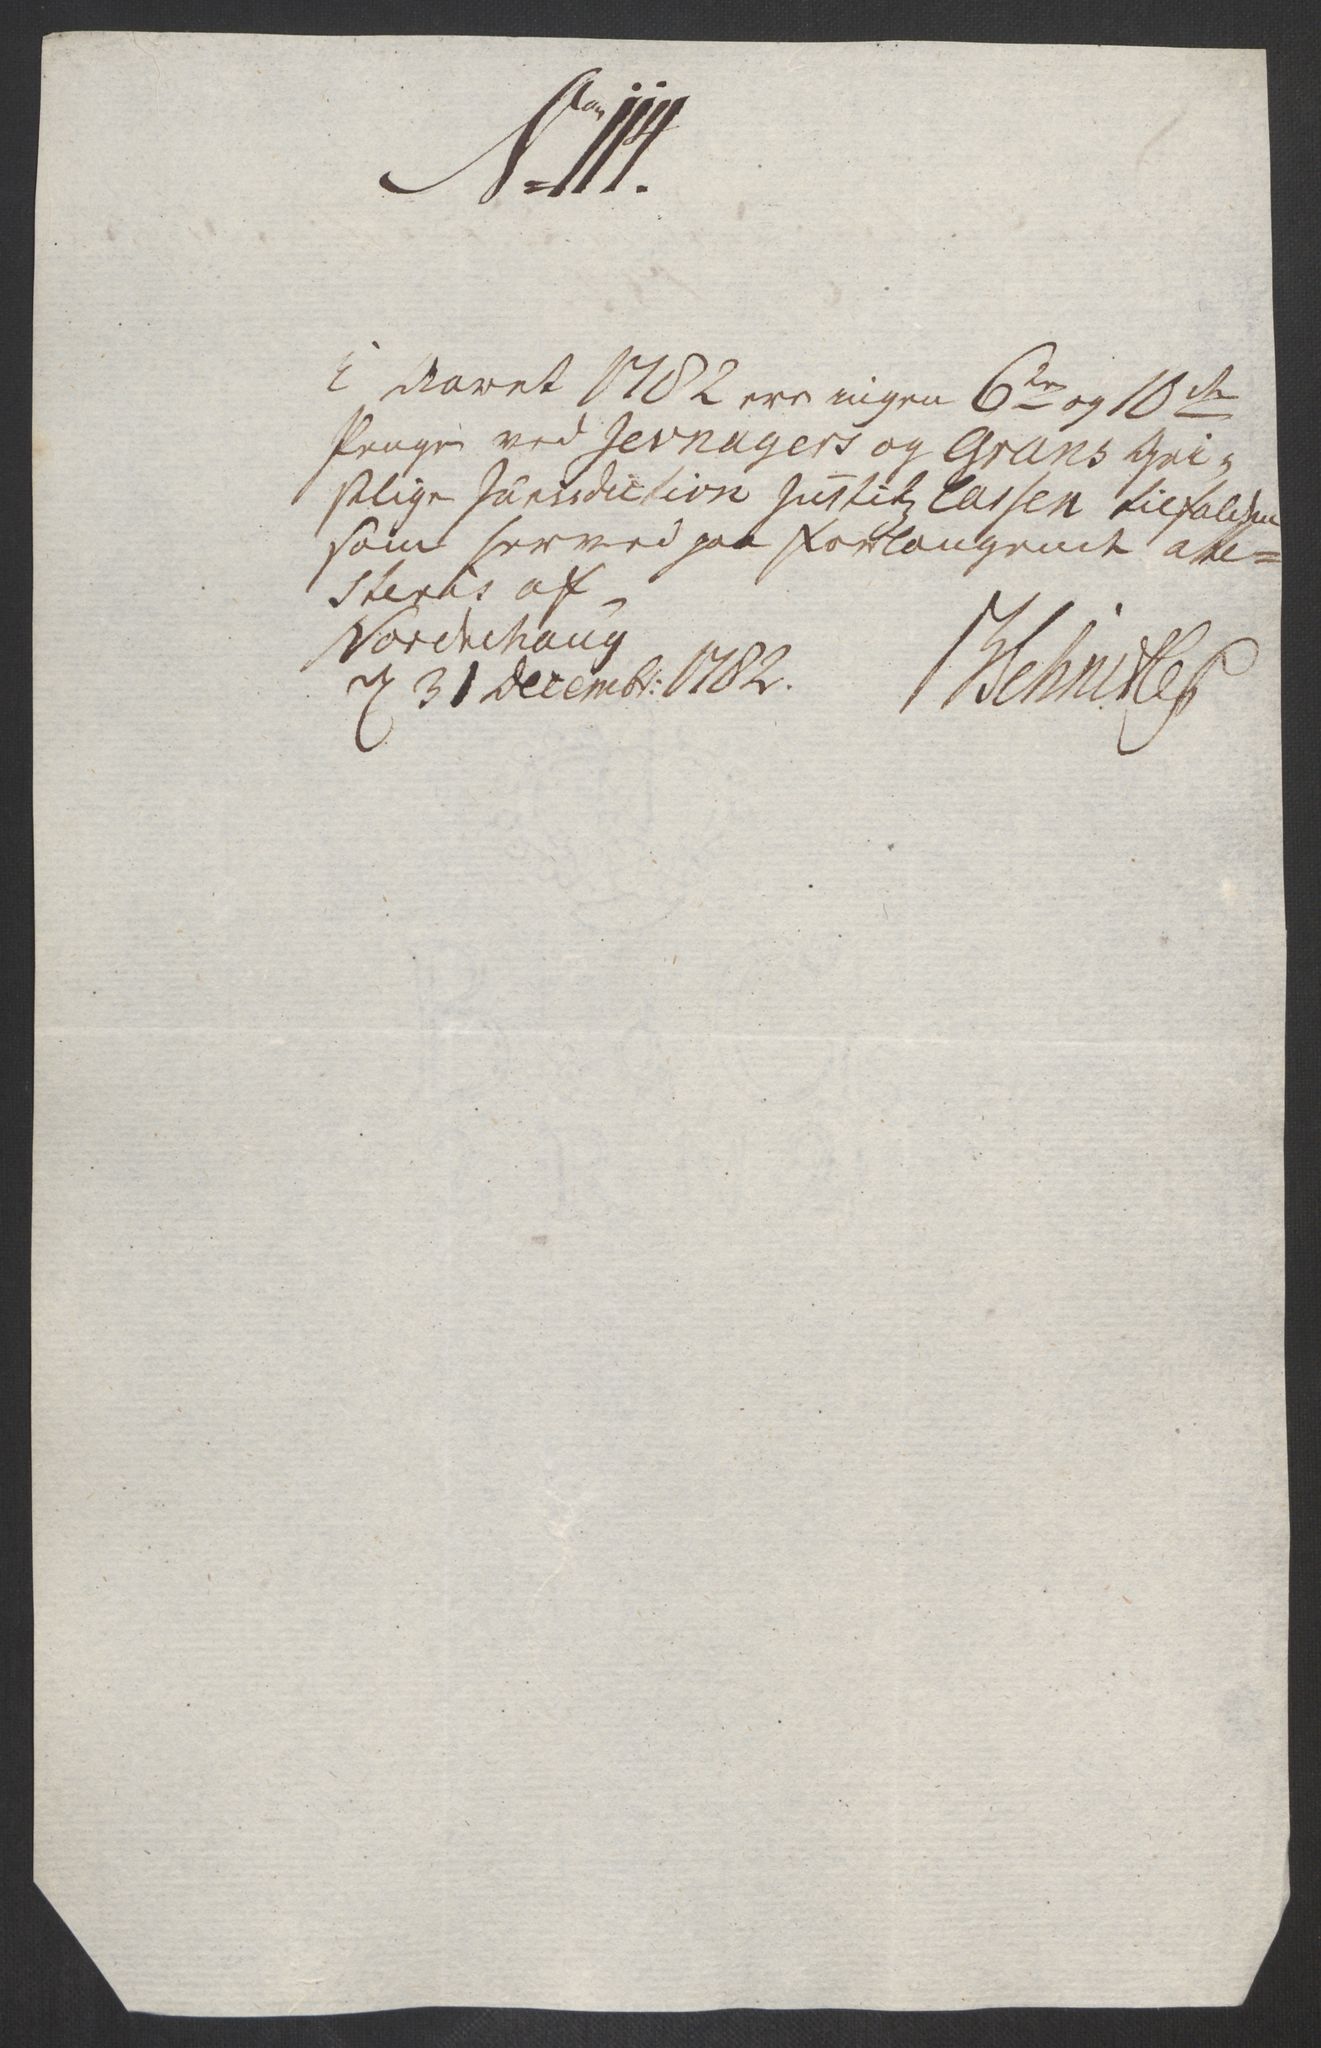 No 114.
i Aaret 1782 ere ingen 6te og 10de
Penge ved Jevnagers og Grans Gei,
stlige Jurisdiction Justitz Cassen tilfalden
som herved paa Forlangende atte=
steris af
Nordrehaug
d 31 Decembr: 1782.